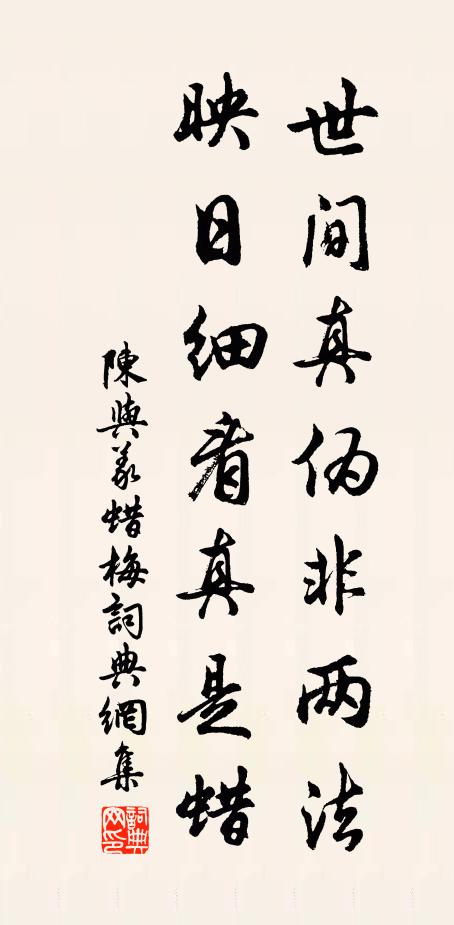 世间真伪非两法
映日细看真是蜡
陳與義蜡梅詞典網集
詞典网印